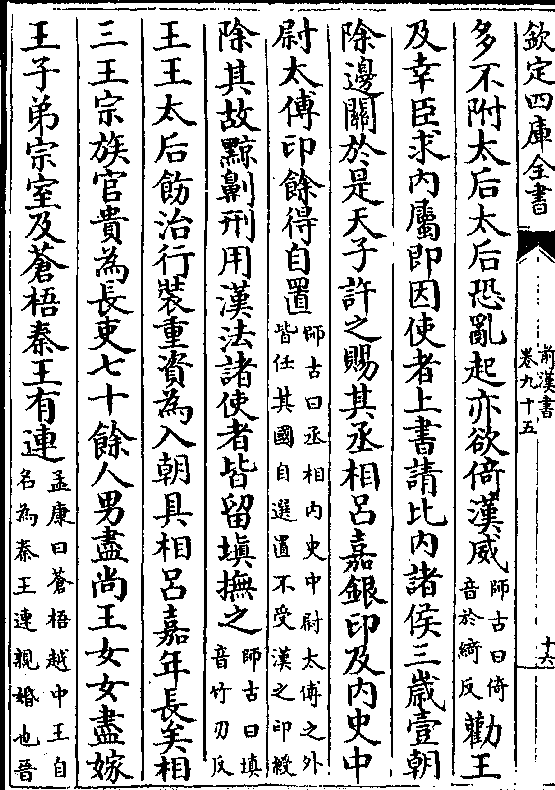 欽定四庫全書
前漢書
卷九十五
十六
多不附太后太后恐亂起亦欲倚漢威師古曰倚音於綺反勸王
及幸臣求內屬即因使者上書請比內諸侯三歲壹朝
除邊關於是天子許之賜其丞相呂嘉銀印及內史中
尉太傅印餘得自置師古曰丞相內史中尉太傅之外皆任其國自選置不受漢之印綬
除其故黥劓刑用漢法諸使者皆留塡撫之師古曰塡音竹刃反
王王太后飭治行裝重資為入朝具相呂嘉年長矣相
三王宗族官貴為長吏七十餘人男盡尚王女女盡嫁
王子弟宗室及蒼梧秦王有連孟康曰蒼梧越中王自名為秦王連親婚也晉